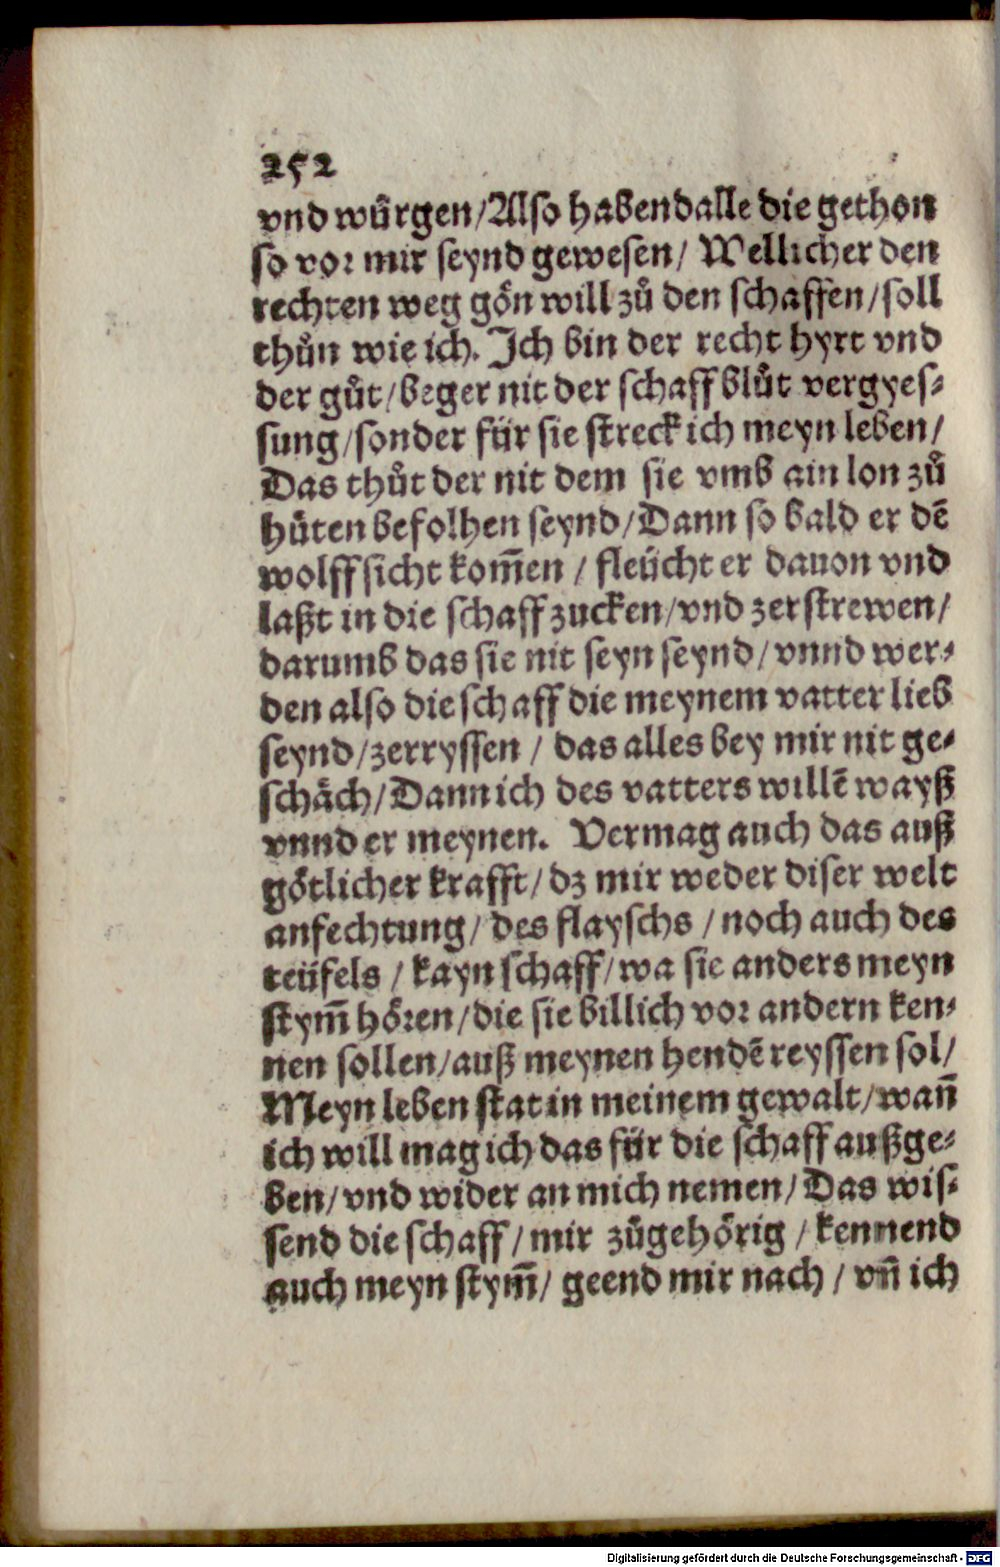 252
vnd würgen/Also habend alle die gethon
so vor mir seynd gewesen/ Wellicher den
rechten weg gön will zů den schaffen/soll
thůn wie ich. Ich bin der recht hyrt vnd
der gůt/beger nit der schaff blůt vergyes⸗
sung/sonder für sie streck ich meyn leben/
Das thůt der nit dem sie vmb ain lon zů
hüten befolhen seynd/Dann so bald er dē
wolff sicht kom̄en / fleücht er dauon vnd
laßt in die schaff zucken/vnd zerstrewen/
darumb das sie nit seyn seynd/vnnd wer⸗
den also die schaff die meynem vatter lieb
seynd/zerryssen / das alles bey mir nit ge⸗
schäch/Dann ich des vatters willē wayß
vnnd er meynen. Vermag auch das auß
götlicher krafft/dz mir weder diser welt
anfechtung/des flayschs /noch auch des
teüfels / kayn schaff/wa sie anders meyn
stym̄ hören/die sie billich vor andern ken⸗
nen sollen/auß meynen hendē reyssen sol/
Meyn leben stat in meinem gewalt/wan̄
ich will mag ich das für die schaff außge⸗
ben/vnd wider an mich nemen/Das wis⸗
send die schaff/mir zůgehörig /kennend
auch meyn stym̄/ geend mir nach / vn̄ ich
Digitalisierung gefördert durch die Deutsche Forschungsgemeinschaft - DFG